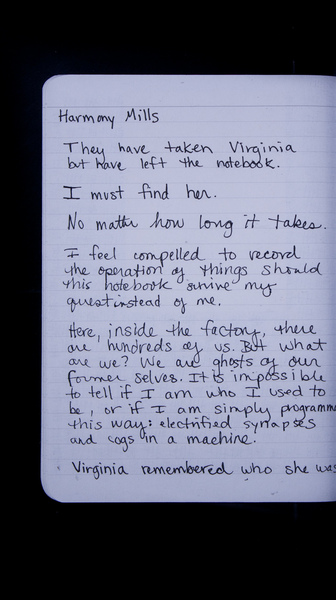 Harmony Mills
They have taken Virginia
but have left the notebook.
I must find her.
No matter how long it takes.
I feel compelled to record
the operation of things should
this notebook survive my
quest instead of me.
Here, inside the factory, there
are hundreds of us. But what
are we? We are ghosts of our
former selves. It is impossible
to tell if I am who I used to
be, or if I am simply programm
this way: electrified synapses
and cogs in a machine.
Virginia remembered who she was